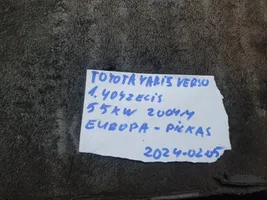 TOYOTA YARIS VERSO
1.4 D4D ZECIS
55KW 2004M
EUROPA - PICKAS
2024-02.05.